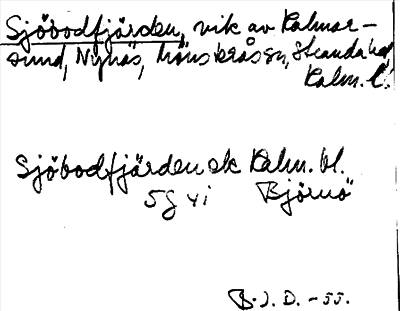 Sjöbodfjärden, vik av Kalmar-
sund, Nynäs, Mönsterås sn, Stranda hd
Kalm. l.
Sjöbodfjärden ek Kalm. bl.
5 g vi Björnö
B.J.D. -55.